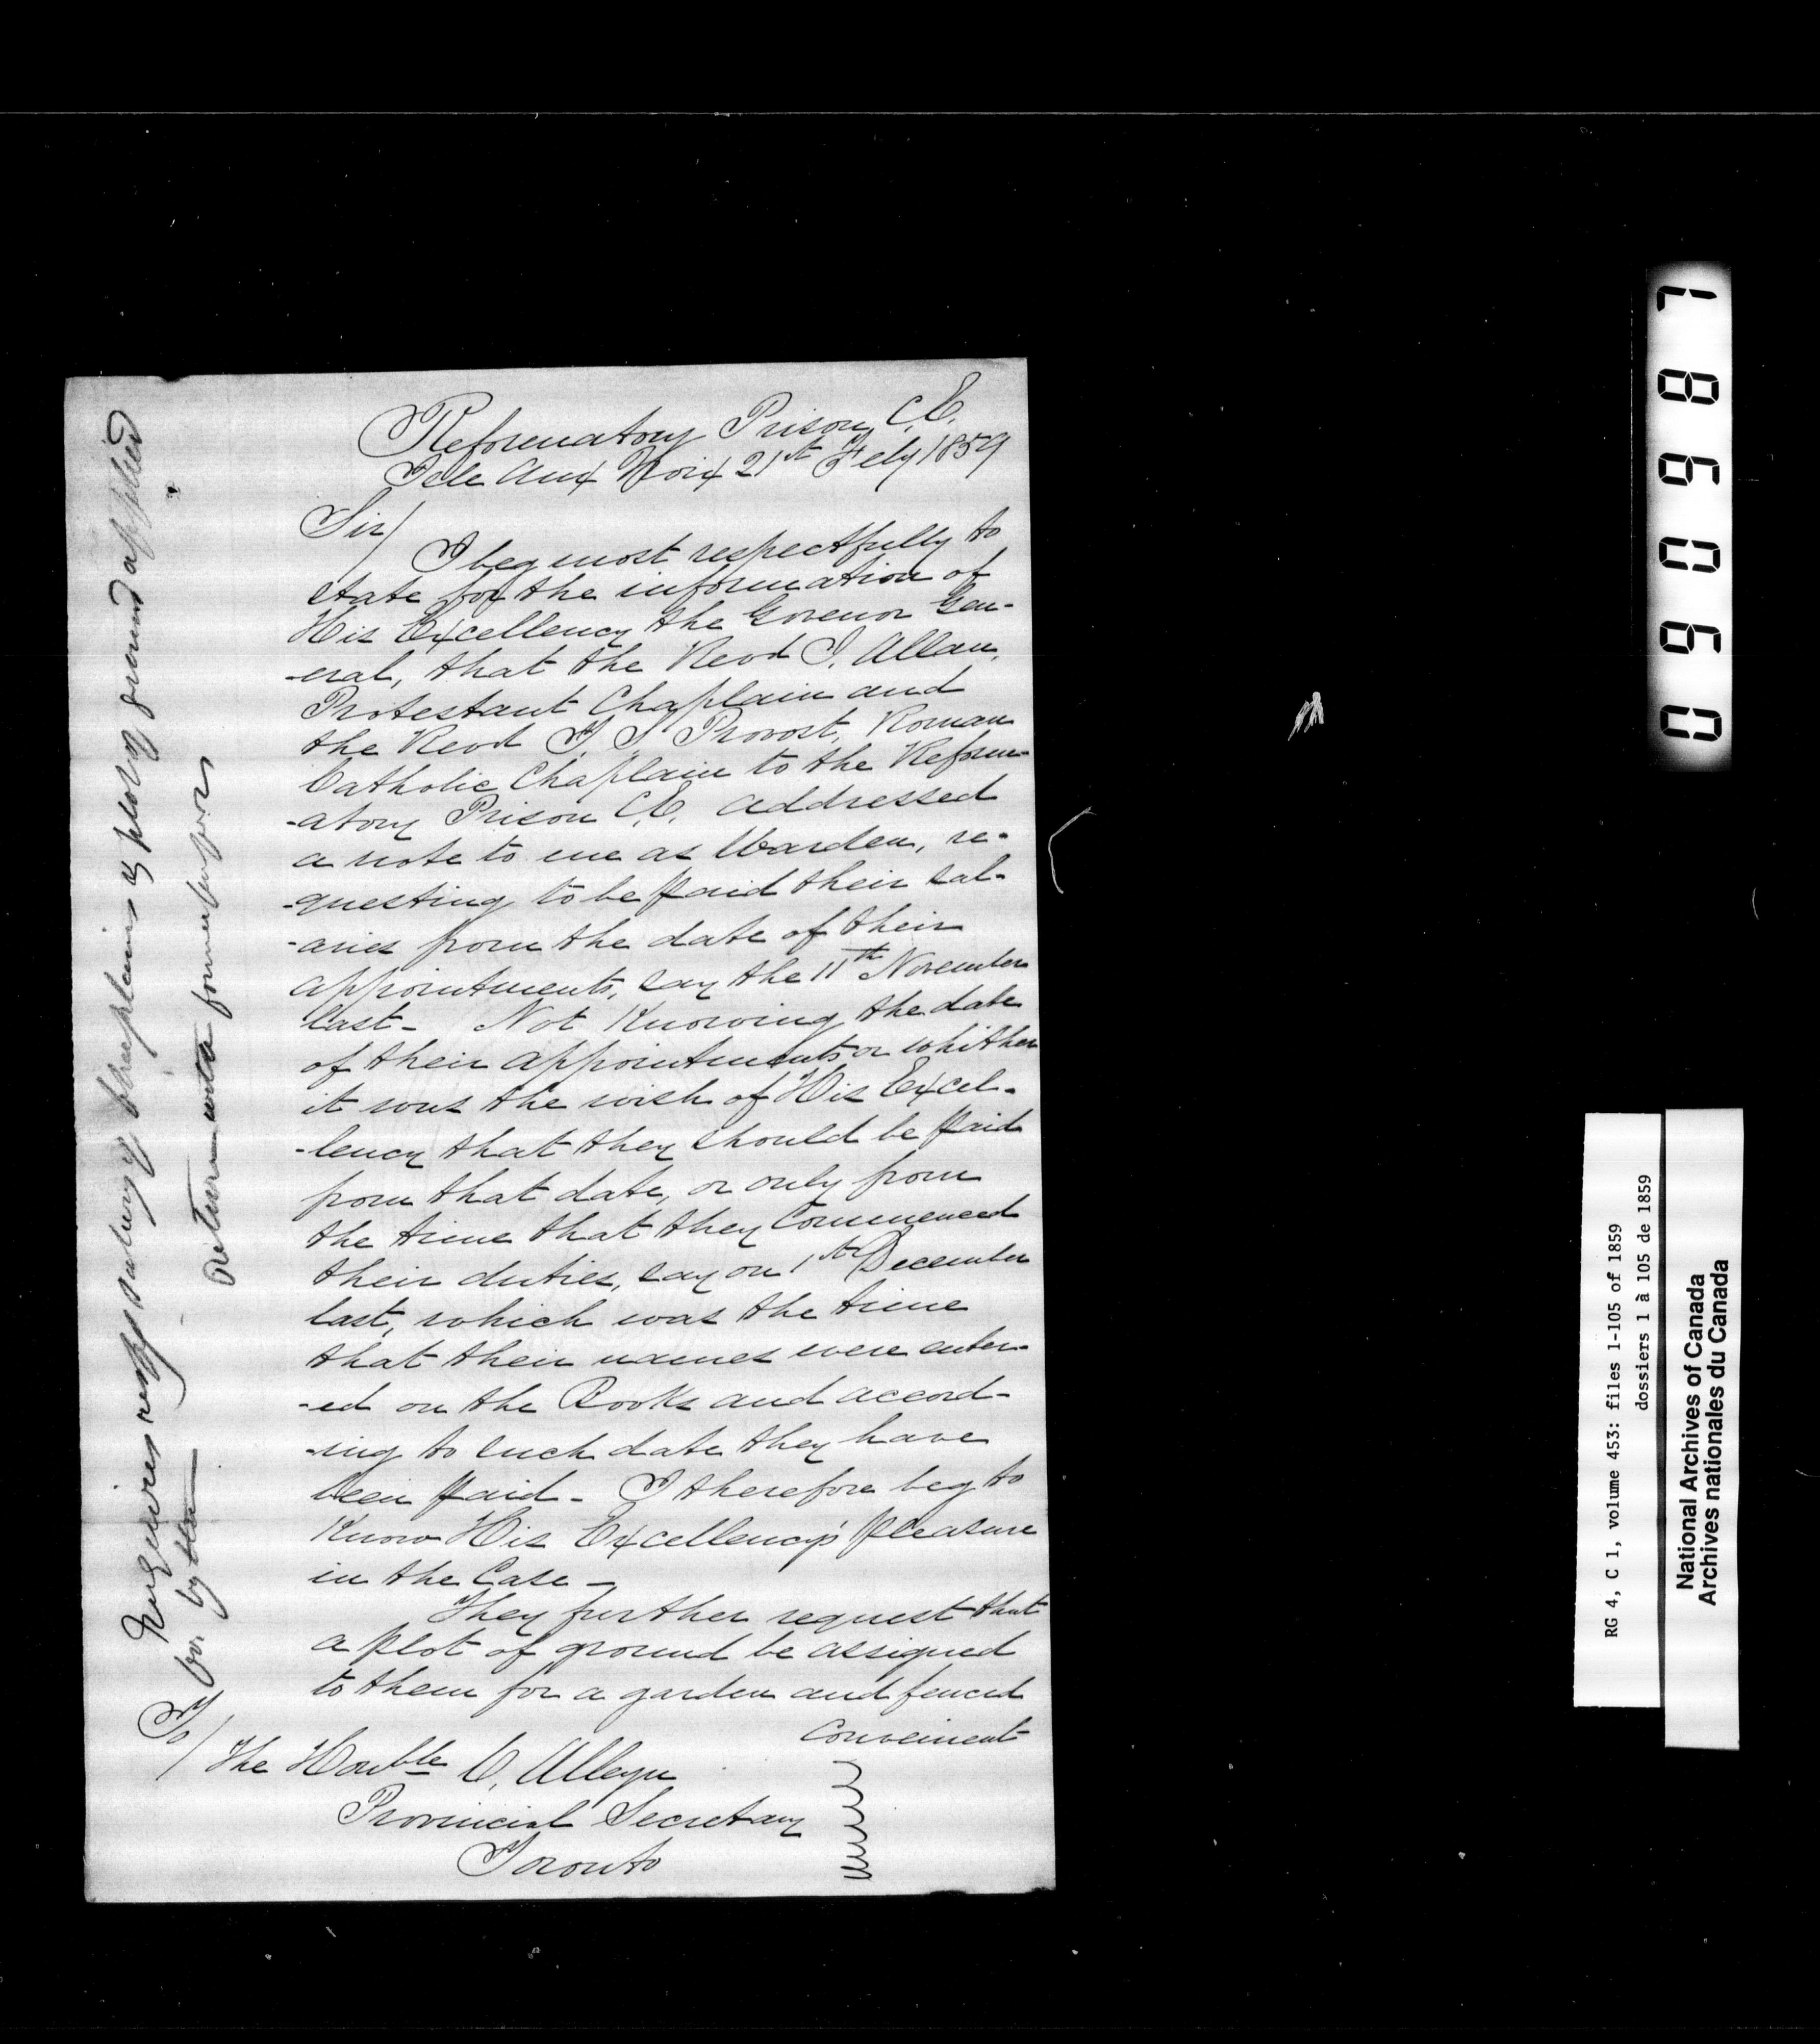 Reformatory Prison, C.E.
Isle Aux Noix 21st Feby 1859
Sir/
I beg most respectfully to
state for the information of
His Excellency the Govenor Gen-
-eral, that the Revd J. Allan,
Protestant Chaplain and
the Revd J. S. Provost, Roman
Catholic Chaplain to the Reform-
-atory Prison C.E. addressed
a note to me as Warden, re-
-questing to be paid their sal-
-aries from the date of their
appointments, say the 11th November
last - Not Knowing the date
of their appointments or whither
it was the wish of His Excel-
-lency that they should be paid
from that date, or only from
the time that they Commenced
their duties, say on 1st December
last, which was the time
that their names were enter-
-ed on the Books and accord-
-ing to such date they have
been paid - I therefore beg to
Know His Excellency's pleasure
in the Case -
They further request that
a plot of ground be assigned
to them for a garden and fenced
Conveinent
To/
The Honble C. Alleyn
Provincial Secretary
Toronto
Enquires resp salary of Chaplains & plot of ground applied
for by them
Return with former papers
0960987
RG 4, C 1, volume 453: files 1-105 of 1859
dossiers 1 à 105 de 1859
National Archives of Canada
Archives nationales du Canada